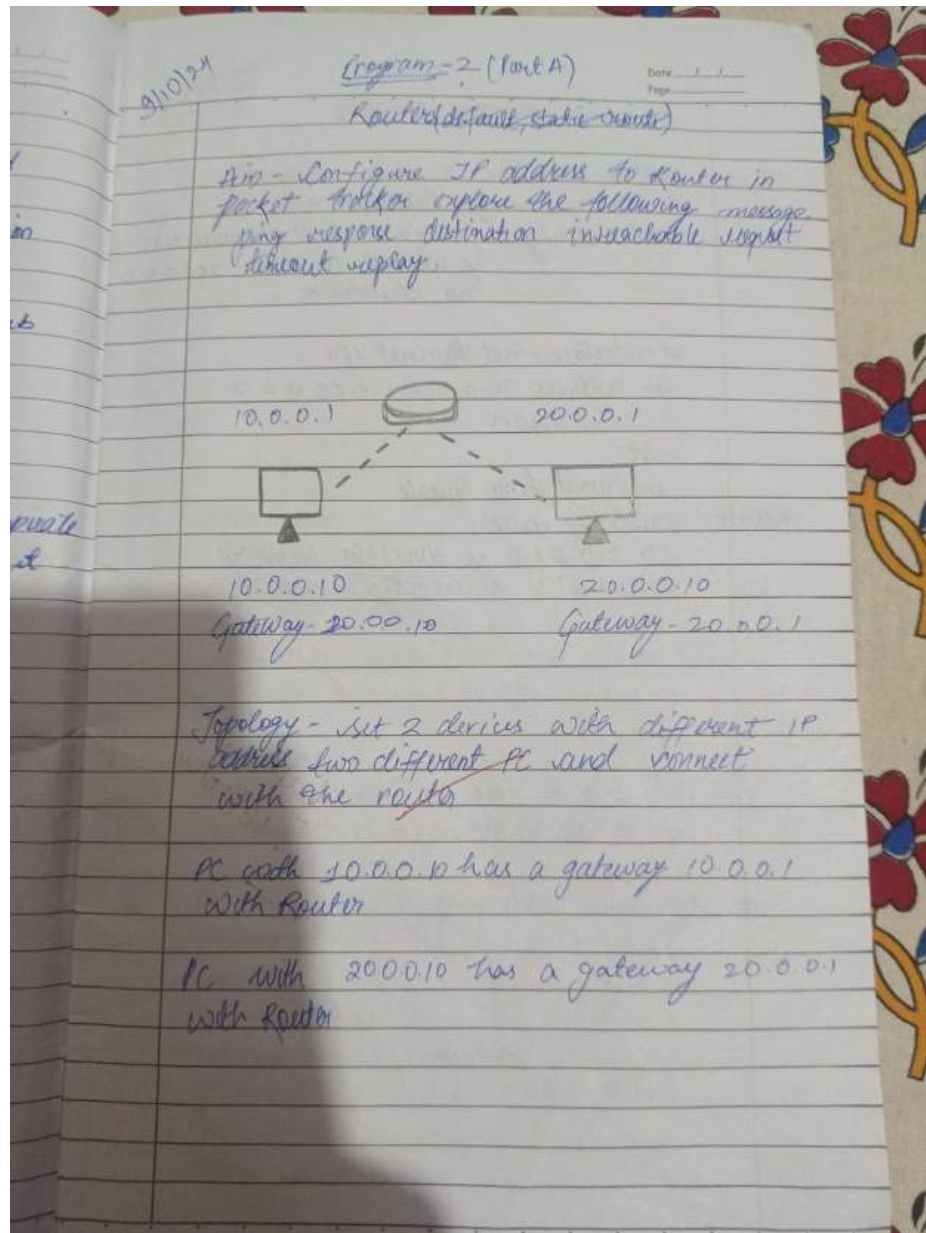 9/10/24
Program-2 (Part A)
Date
Page
Router (default, static route)
Aim - Configure IP address to Router in
packet explore the following message
ping response distination request
timeout replay.
10.0.0.1
20.0.0.1
10.0.0.10
20.0.0.10
Gateway - 20.00.10
Gateway - 20.0.0.1
Topology - set 2 devices with different IP
address two different PC and connect
with the router
PC with 10.0.0.10 has a gateway 10.0.0.1
with Router
PC with 200010 has a gateway 20.0.0.1
with Router